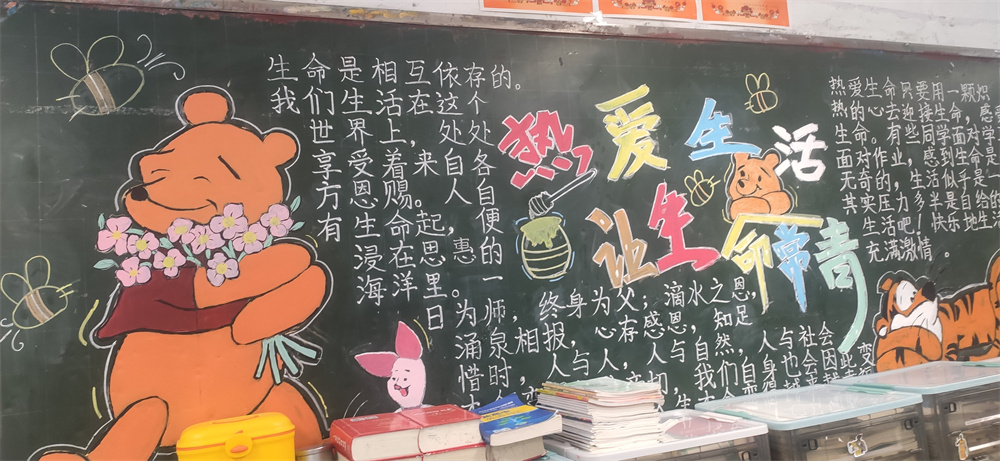 生命是相互依存的。
我们生活在这个
世界上，处处
享受着来自各
方恩赐。人自
有生命起，便
浸在恩惠的
海洋里。一
日为师，终身为父；滴水之恩，
涌泉相报，心存感恩，知足
惜时，人与人，人与自然，人与社会
切，我们自身也会因此变
热爱生活
让生命常青
热爱生命只要用一颗炽
热的心去迎接生命，感
生命。有些同学面对学
面对作业，感到生命是
无奇的，生活似乎是一
其实压力多半是自给的
生活吧！快乐地生
充满激情。